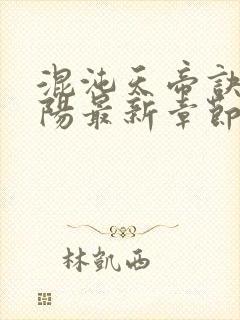 混沌天帝訣
陽最新章節
林凱西